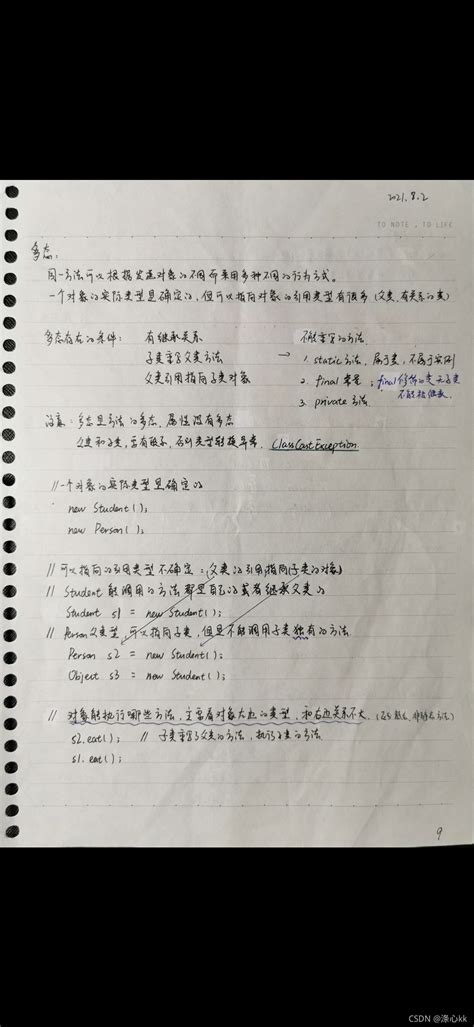 2021.8.2
TO NOTE , TO LIFE
多态:
同一方法可以根据发送对象的不同而采用多种不同的行为方式。
一个对象的实际类型是确定的,但可以指向对象的引用类型有很多 (父类,有关系的类)
多态存在的条件: 有继承关系 不能重写的方法
子类重写父类方法 → 1. static 方法, 属于类, 不属于实例
父类引用指向子类对象 2. final 常量 ; final修饰的类无子类 不能被继承.
3. private 方法
注意: 多态是方法的多态, 属性没有多态
父类和子类, 要有联系, 否则类型转换异常. ClassCastException
//一个对象的实际类型是确定的
new Student();
new Person();
// 可以指向的引用类型不确定 : (父类的引用指向子类的对象)
// Student 能调用的方法都是自己的或者继承父类的
Student s1 = new Student();
// Person父类型, 可以指向子类, 但是不能调用子类独有的方法
Person s2 = new Student();
Object s3 = new Student();
// 对象能执行哪些方法, 主要看对象左边的类型, 和右边关系不大.
s2.eat(); // 子类重写了父类的方法, 执行子类的方法
s1.eat();
9
CSDN @涤心kk